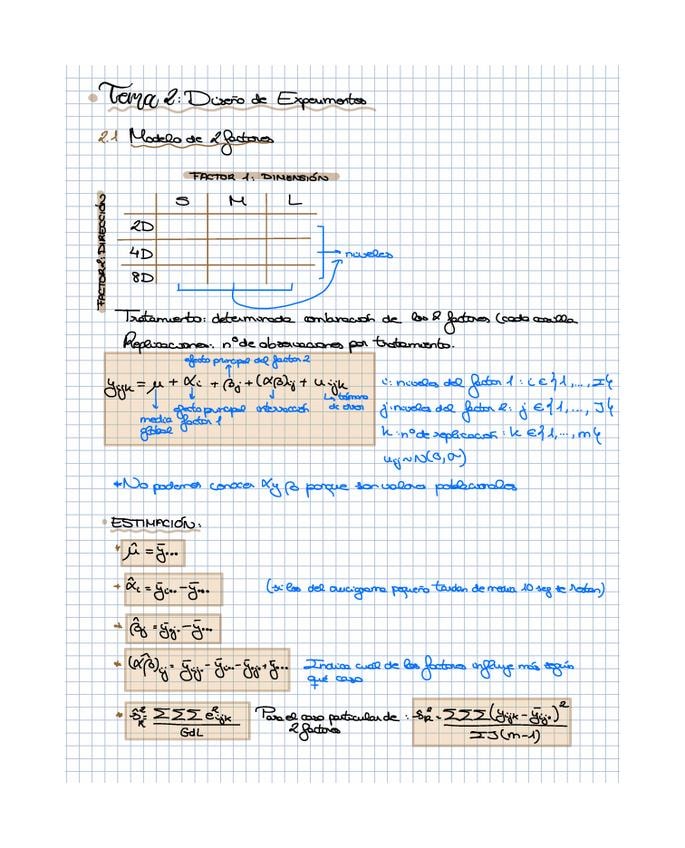 Tema 2: Diseño de Experimentos
2.1 Modelo de 2 factores
FACTOR 1: DIMENSIÓN
FACTOR 2: DIRECCIÓN
S M L
2D
4D
8D
niveles
Tratamiento: determinada combinación de los 2 factores (cada casilla
Replicaciones: nº de observaciones por tratamiento.
efecto principal del factor 2
yijk = μ + αi + βj + (αβ)ij + uijk
media global
efecto principal factor 1
interacción
término de error
i: niveles del factor 1: i ∈ {1, ..., I}
j: niveles del factor 2: j ∈ {1, ..., J}
k: nº de replicación: k ∈ {1, ..., m}
uij ~ N(0, σ)
*No podemos conocer α y β porque son valores poblacionales
ESTIMACIÓN:
* μ̂ = ȳ...
* α̂i = ȳi.. - ȳ...
(si los del crucigrama pequeño tardan de media 10 seg te restan)
* β̂j = ȳ.j. - ȳ...
* (αβ̂)ij = ȳij. - ȳi.. - ȳ.j. + ȳ...
Indica cual de los factores influye más según qué caso
* ŝ²R = ΣΣΣ e²ijk / GdL
Para el caso particular de 2 factores: ŝ²R = ΣΣΣ(yijk - ȳij.)² / IJ(m-1)